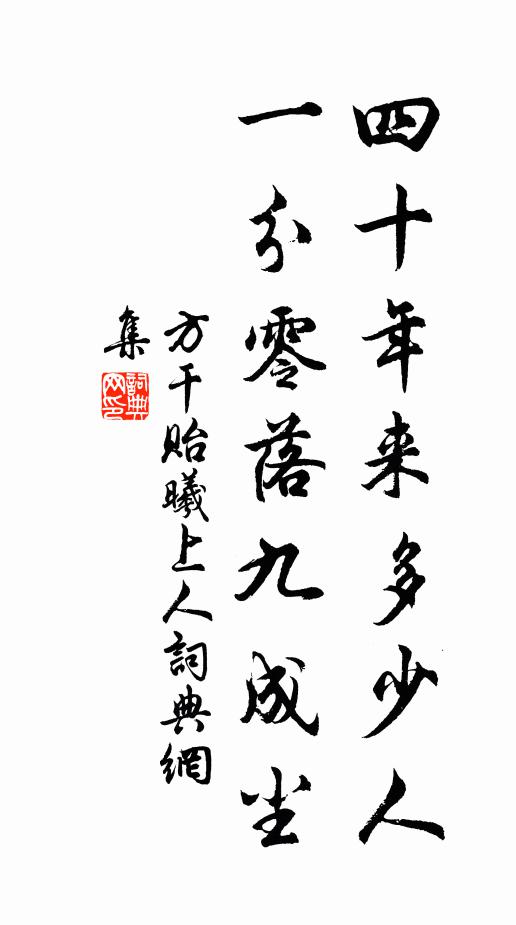 四十年来多少人
一分零落九成尘
方干贻曦上人词典網
集
詞典
网印